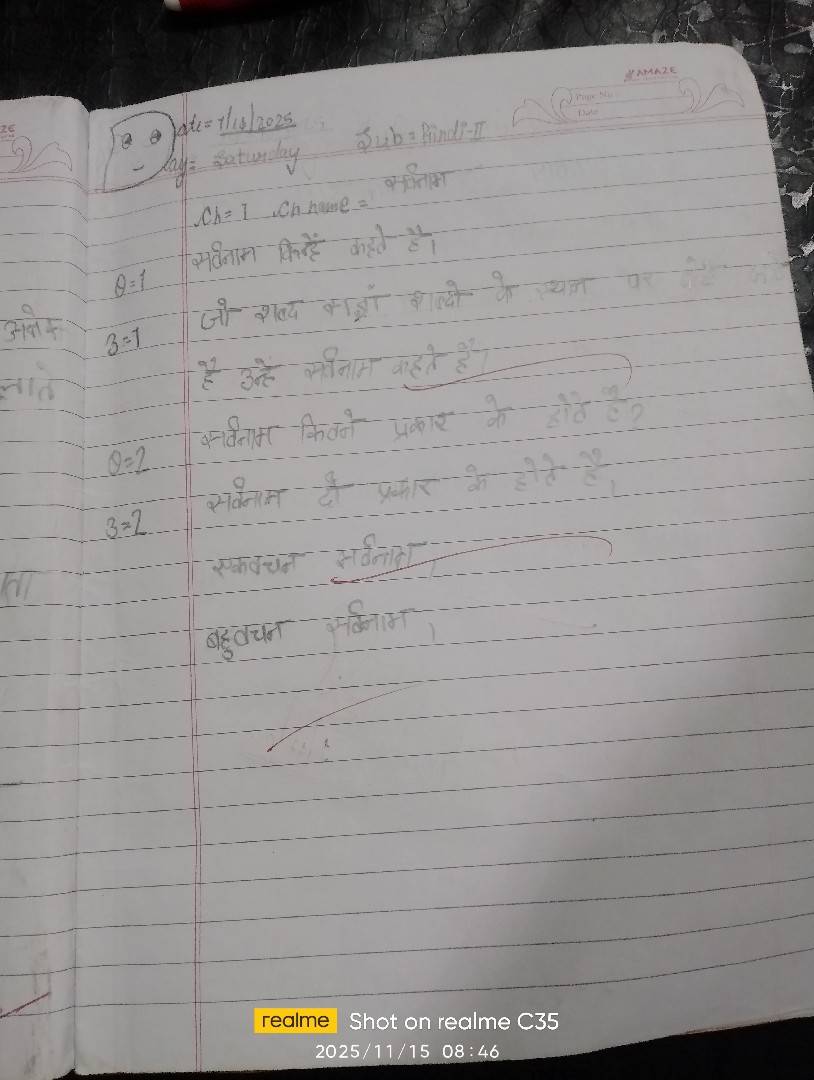 AMAZE
Page No.
Date
ate = 1/1 /2025
Sub = Hindi-II
ay = Saturday
Ch = 1 Ch name = सर्वनाम
Q=1 सर्वनाम किन्हें कहते है।
उ=1 जो शब्द शब्दो के स्थान पर
है उन्हें सर्वनाम कहते हैं।
Q=2 सर्वनाम कितने प्रकार के होते है?
उ=2 सर्वनाम दो प्रकार के होते है,
एकवचन सर्वनाम,
बहुवचन सर्वनाम,
लाते
realme Shot on realme C35
2025/11/15 08:46